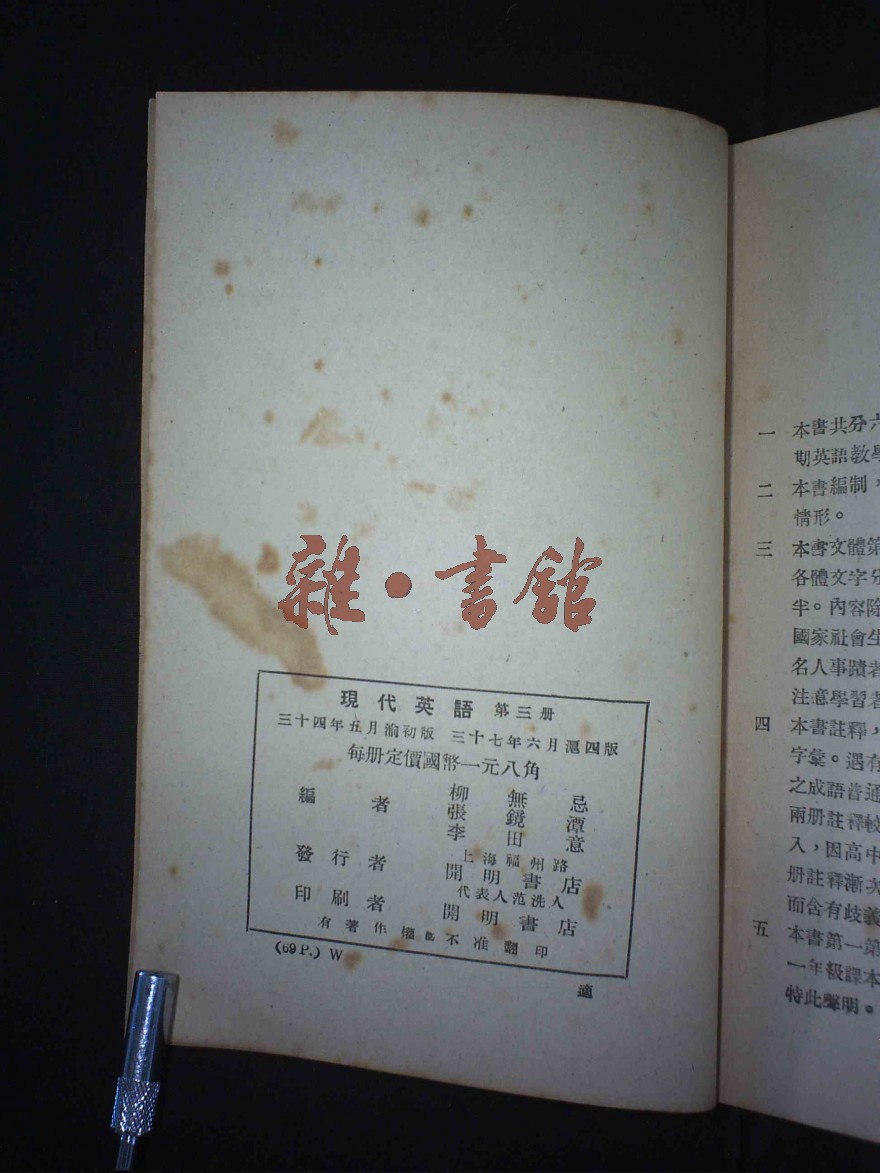 雜·書館
現代英語 第三册
三十四年五月渝初版 三十七年六月滬四版
每册定價國幣一元八角
編者 柳無忌
張鏡潭
李田意
發行者 上海福州路
開明書店
代表人范洗人
印刷者 開明書店
有著作權不准翻印
(69 P.) W
適
一 本書共分六
期英語教學
二 本書編制，
情形。
三 本書文體第
各體文字分
半。內容除
國家社會生
名人事蹟者
注意學習者
四 本書註釋，
字彙。遇有
之成語普通
兩册註釋較
入，因高中
册註釋漸次
而含有歧義
五 本書第一第
一年級課本
特此聲明。